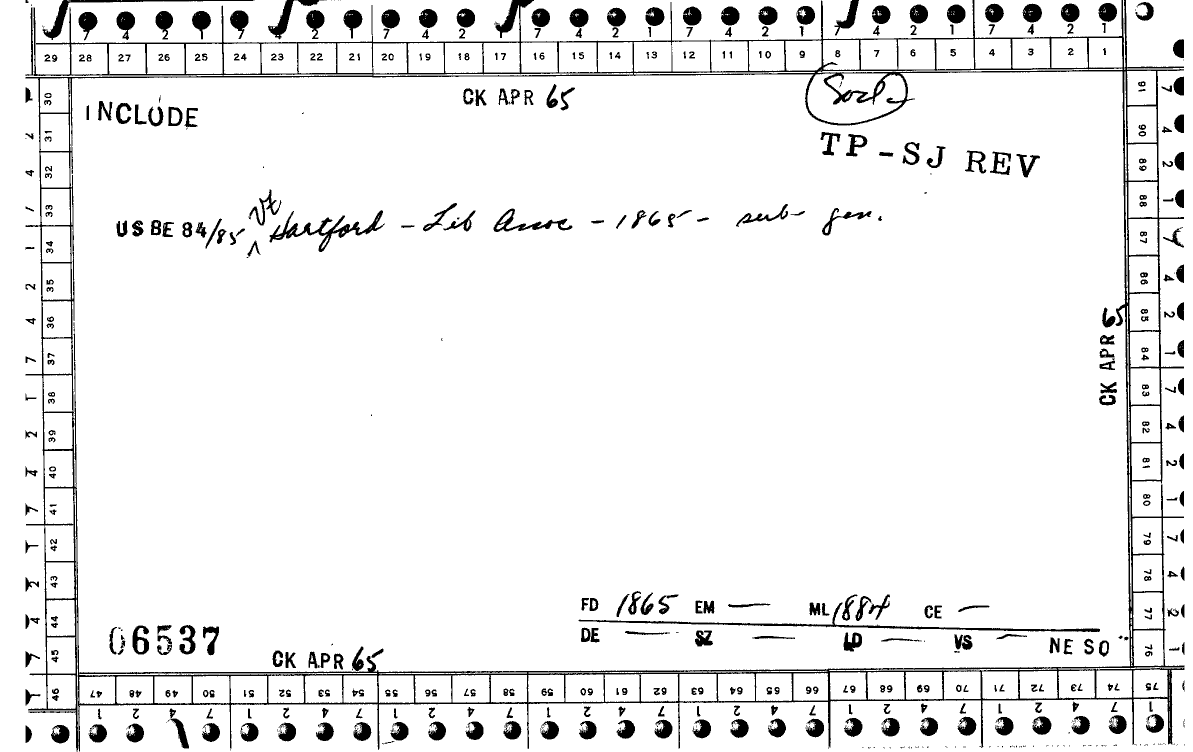 7 4 2 1 7 4 2 1 7 4 2 1 7 4 2 1 7 4 2 1 7 4 2 1 7 4 2 1
29 28 27 26 25 24 23 22 21 20 19 18 17 16 15 14 13 12 11 10 9 8 7 6 5 4 3 2 1
INCLUDE
CK APR 65
TP-SJ REV
Vt
US BE 84/85 ^ Hartford - Lib Assoc - 1865 - sub- gen.
CK APR 65
FD 1865 EM — ML 1884 CE —
DE — SZ — LD — VS — NE SO
06537
CK APR 65
30 31 32 33 34 35 36 37 38 39 40 41 42 43 44 45 46
91 90 89 88 87 86 85 84 83 82 81 80 79 78 77 76 75
47 48 49 50 51 52 53 54 55 56 57 58 59 60 61 62 63 64 65 66 67 68 69 70 71 72 73 74
1 2 4 7 1 2 4 7 1 2 4 7 1 2 4 7 1 2 4 7 1 2 4 7 1 2 4 7 1